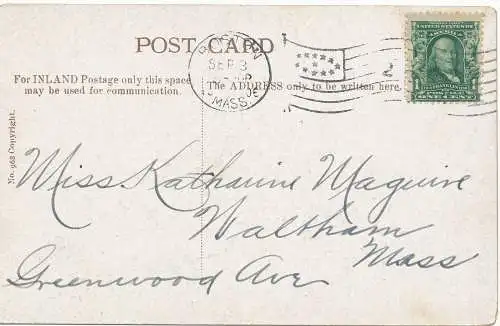 POST CARD
SEP 3
MASS.
2
For INLAND Postage only this space
may be used for communication.
The ADDRESS only to be written here.
No. 968 Copyright.
UNITED STATES OF
AMERICA
1 1
ONE CENT
Miss Katharine Maguire
Waltham
Mass
Greenwood Ave